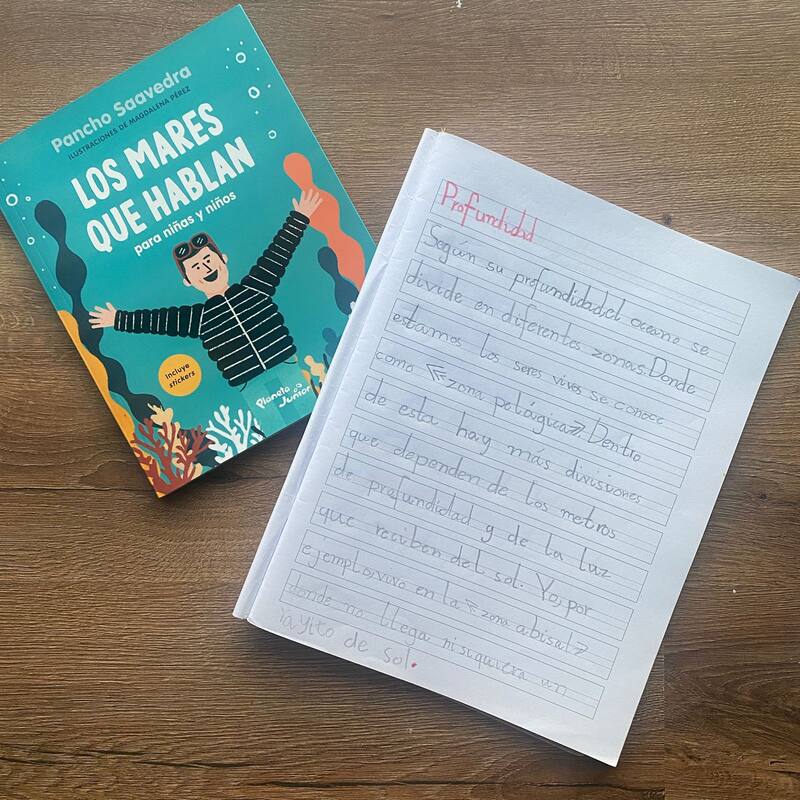 Pancho Saavedra
ILUSTRACIONES DE MAGDALENA PÉREZ
LOS MARES
QUE HABLAN
para niñas y niños
Incluye
stickers
Planeta
Junior
Profundidad
Según su profundidad,el oceano se
divide en diferentes zonas.Donde
estamos los seres vivos se conoce
como «zona pelágica».Dentro
de esta hay más divisiones
que dependen de los metros
de profundidad y de la luz
que reciben del sol. Yo, por
ejemplo,vivo en la «zona abisal»
donde no llega ni siquiera un
rayito de sol.